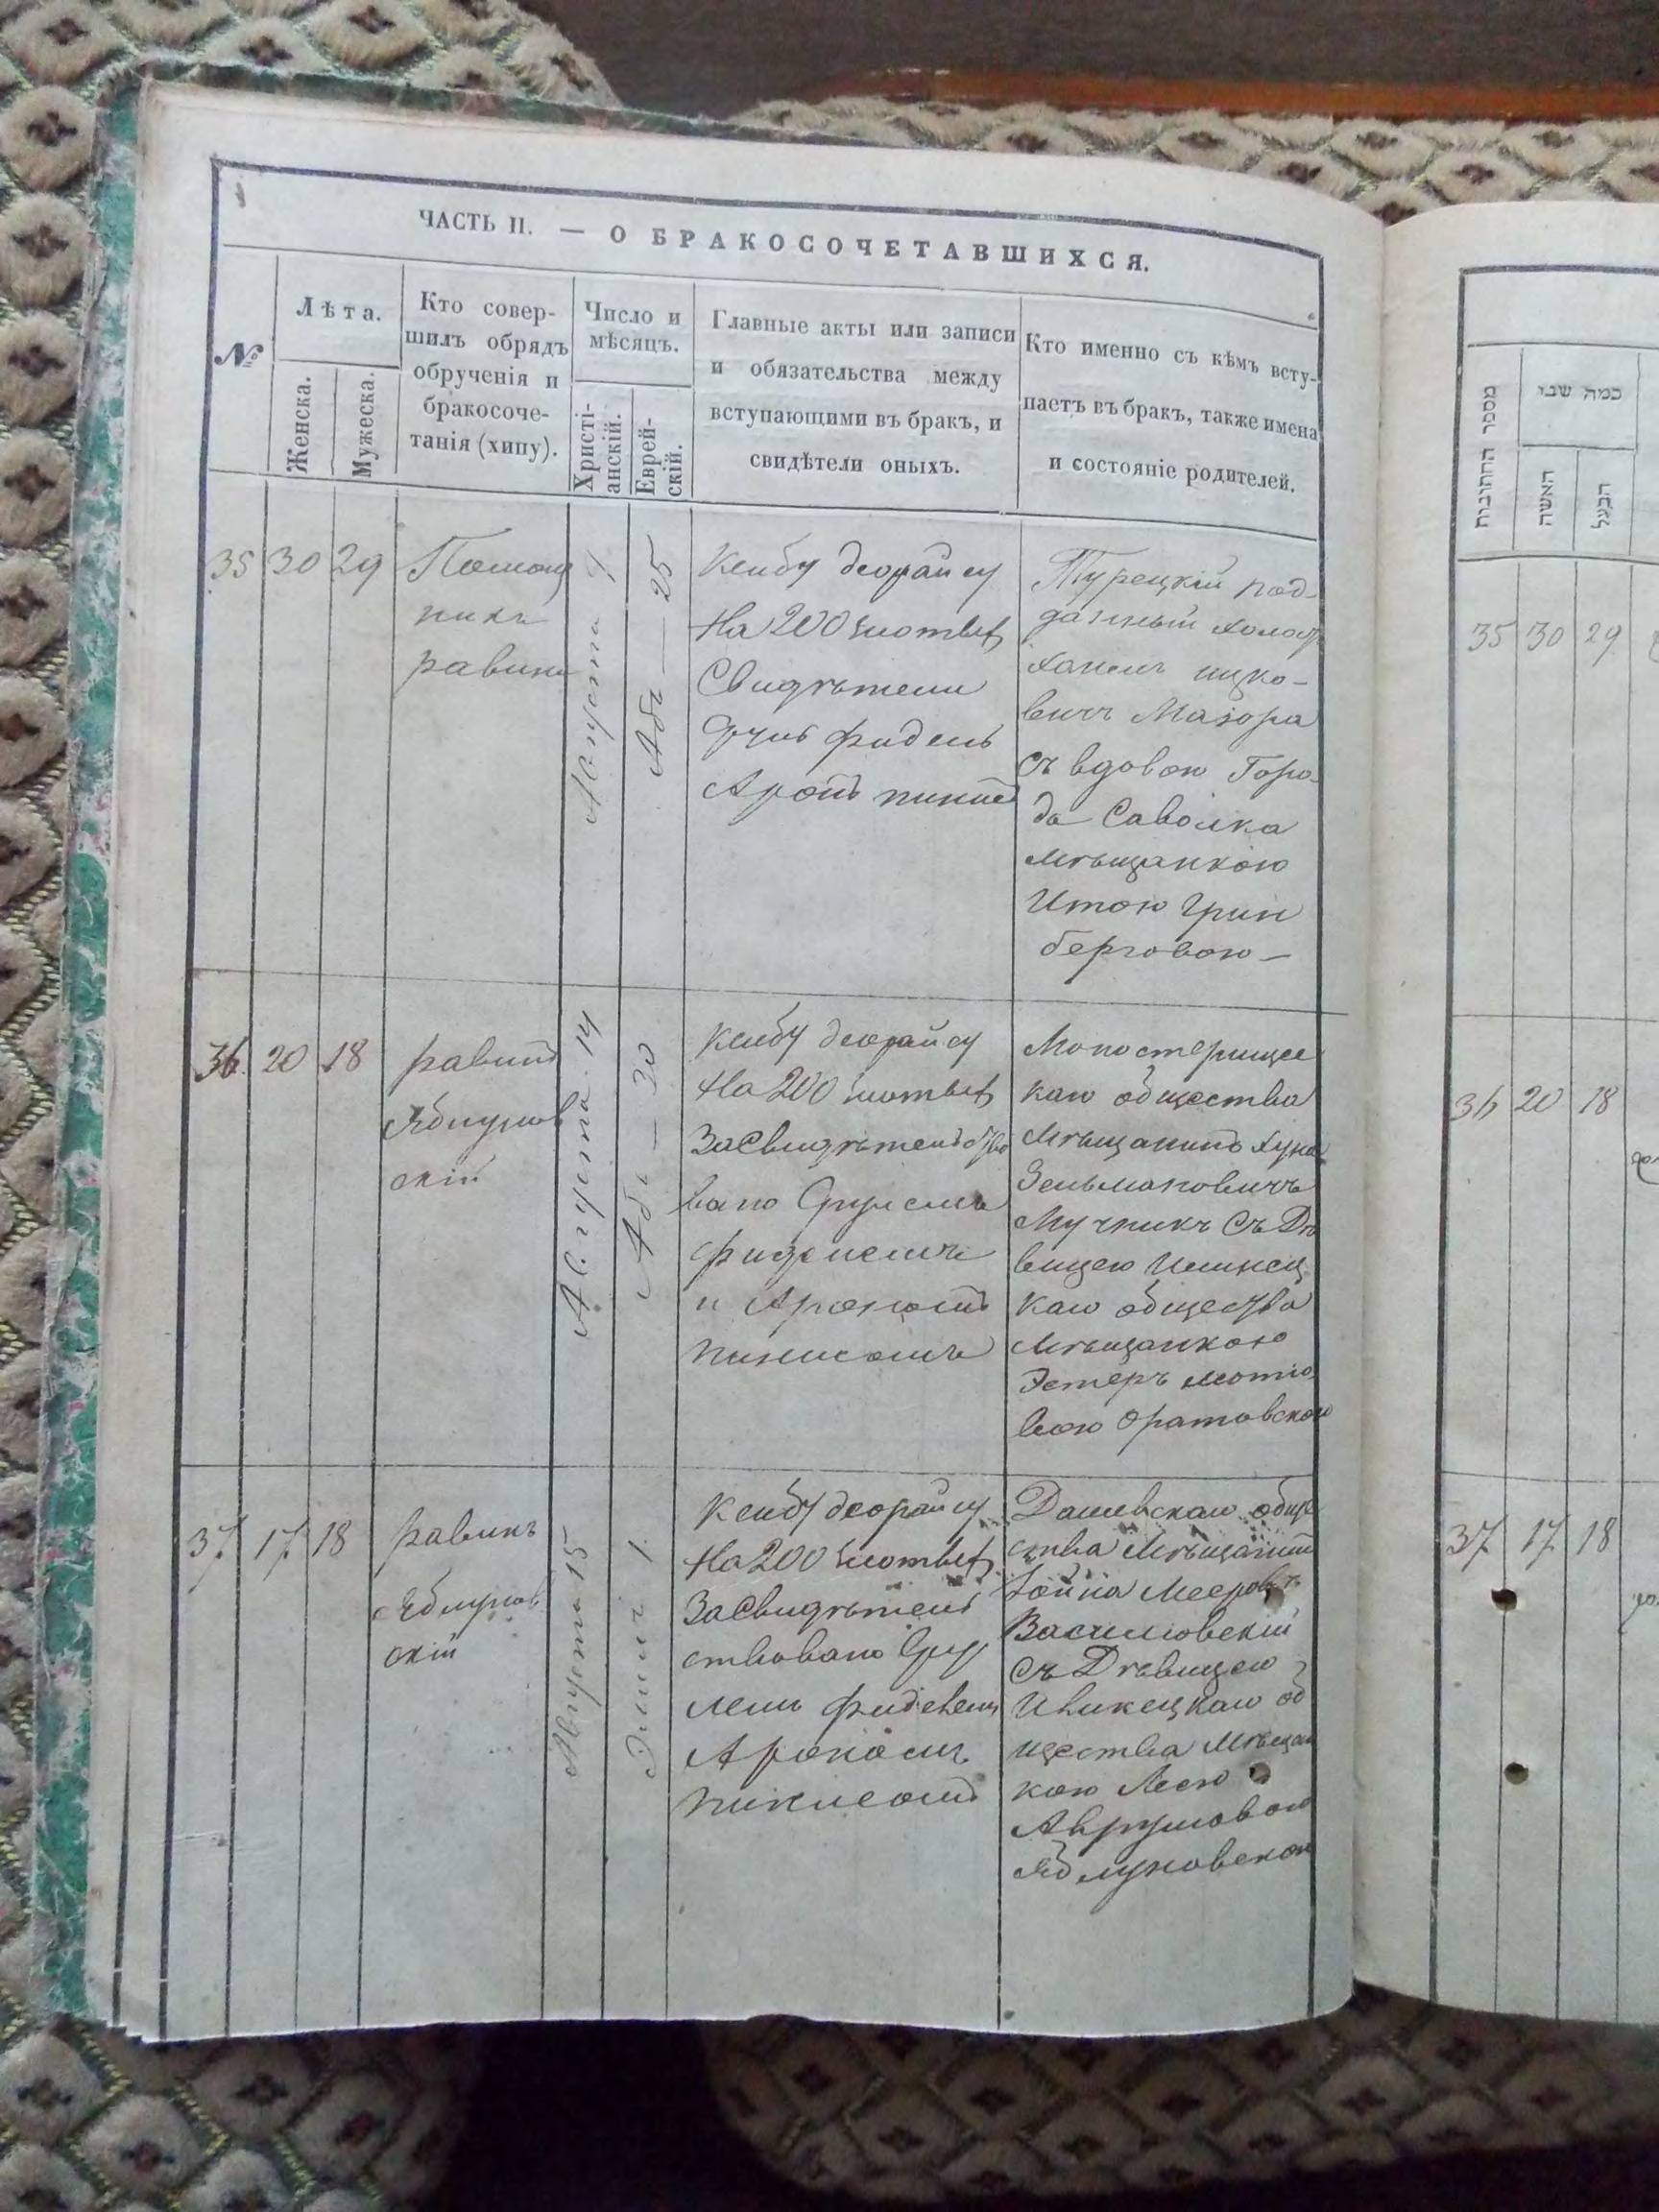 ЧАСТЬ II. — О БРАКОСОЧЕТАВШИХСЯ.
№
Лѣта.
Женска.
Мужеска.
Кто совер-
шилъ обрядъ
обрученія и
бракосоче-
танія (хипу).
Число и
мѣсяцъ.
Христі-
анскій.
Еврей-
скій.
Главные акты или записи
и обязательства между
вступающими въ бракъ, и
свидѣтели оныхъ.
Кто именно съ кѣмъ всту-
паетъ въ бракъ, также имена
и состояніе родителей.
35 30 29
Помощ
никъ
равина
Августа
Абъ — 25
Ксибу деорайсу
На 200 злотых
Свидѣтели
фидель
Аронъ
Турецкій под-
данный холост
ицко-
вичъ Мазора
съ вдовою Горо-
да
мѣщанкою
Итою Грин
берговою —
36 20 18
равинъ
Яблунов
скій
Августа 14
Абъ — 30
Ксибу деорайсу
На 200 злотых
Засвидѣтельство
вано Срулемъ
и Арономъ
Монастерищс
каго общества
мѣщанинъ
Зельмановичъ
Мучникъ съ Дѣ
вицею Илинец
каго общества
мѣщанкою
Эстеръ мотьо
вою Оратовскою
37 17 18
равинъ
Яблунов
скій
Августа 15
Элилъ 1
Ксибу деорайсу
На 200 злотых
Засвидѣтель
ствовано Сру
лемъ
Арономъ
Дашевскаго общ
ства мѣщанинъ
Мееровъ
Василовскій
съ Дѣвицею
об
щества мѣщан
кою Леею
Аврумовою
Яблуновскою
מספר החתונות
כמה שני
האשה
הבעל
35 30 29
36 20 18
37 17 18